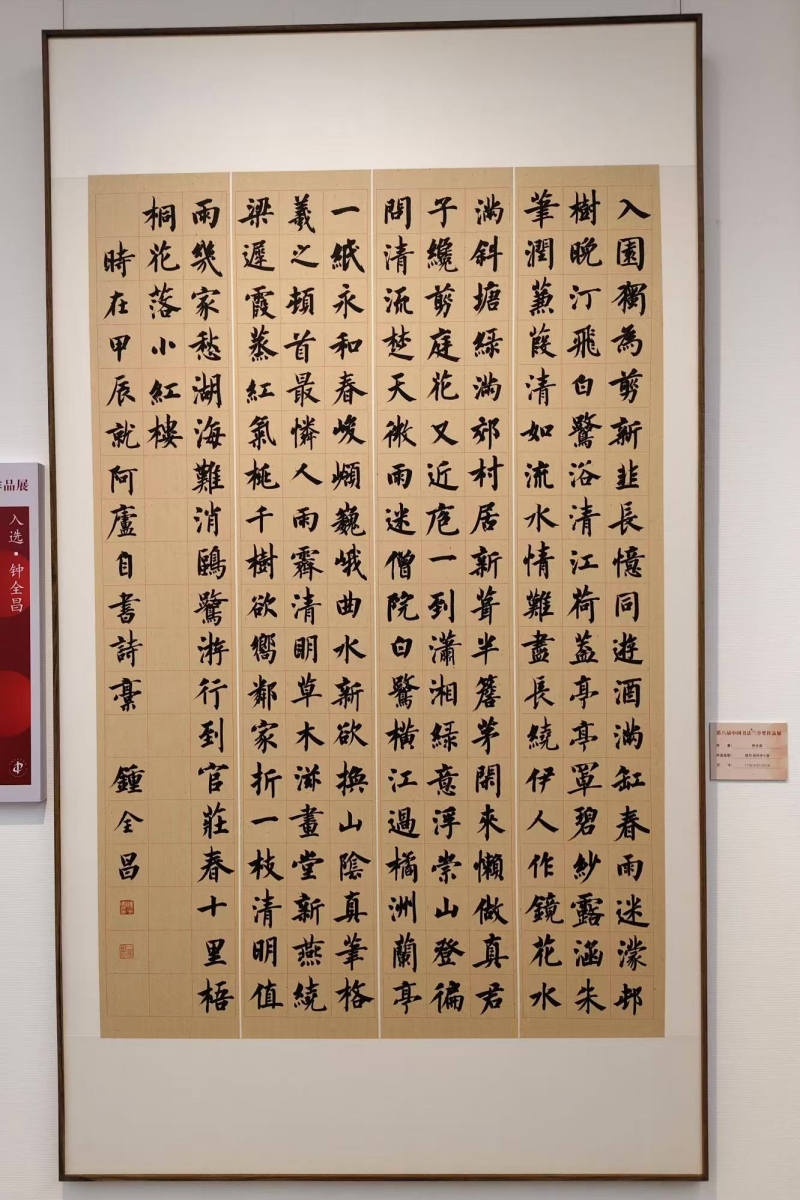 入園獨為剪新韭長憶同遊酒滿缸春雨迷濛邨
樹晚汀飛白鷺浴清江荷蓋亭亭罩碧紗露涵朱
筆潤蒹葭清如流水情難盡長繞伊人作鏡花水
滿斜塘綠滿郊村居新葺半簷茅閑來懶做真君
子纔剪庭花又近庖一到瀟湘綠意浮崇山登徧
問清流楚天微雨迷僧院白鷺橫江過橘洲蘭亭
一紙永和春峻嶺巍峨曲水新欲換山陰真筆格
羲之頓首最憐人雨霽清明草木滋畫堂新燕繞
梁遲霞蒸紅氣桃千樹欲嚮鄰家折一枝清明值
雨幾家愁湖海難消鷗鷺游行到官莊春十里梧
桐花落小紅樓
時在甲辰就阿廬自書詩稾 鍾全昌
作品展
入选·钟全昌
第八届中国书法兰亭奖作品展